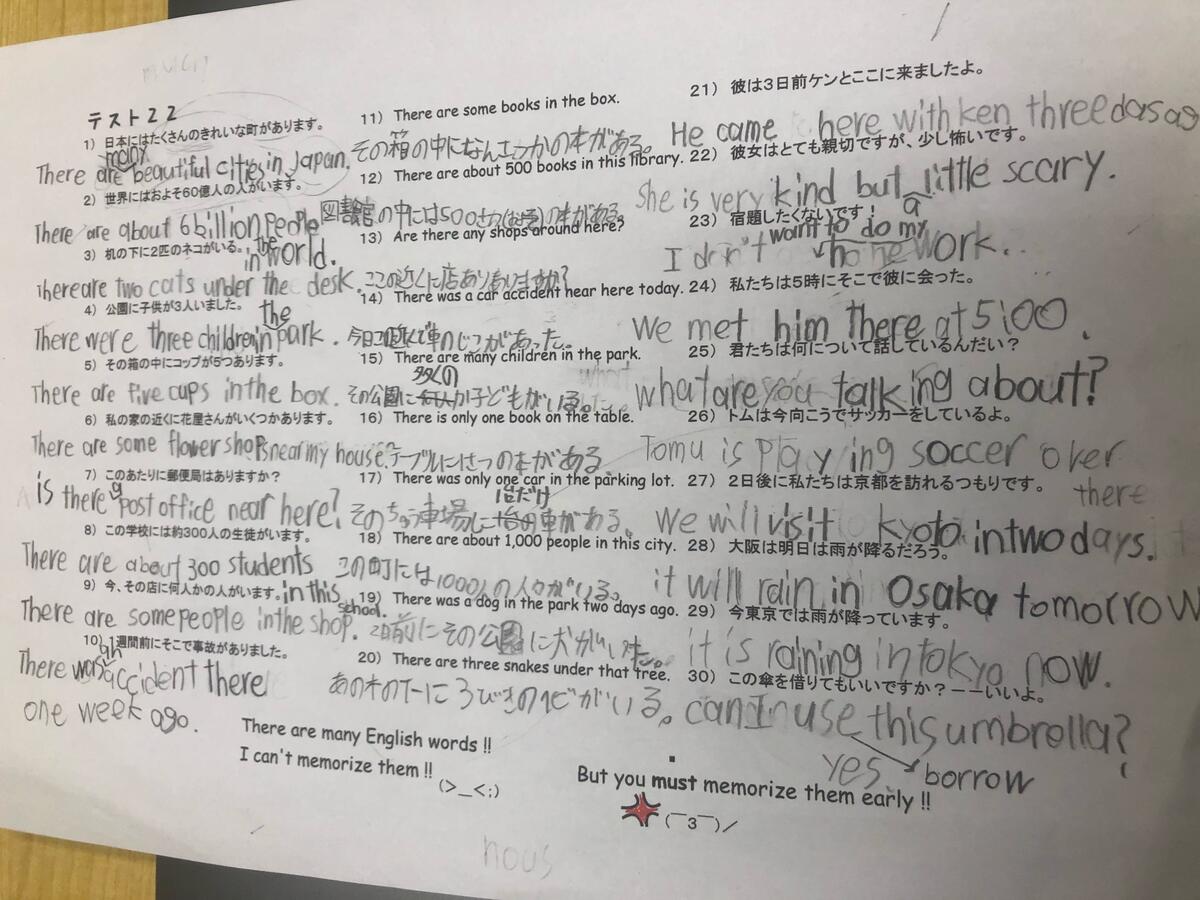 テスト２２
1) 日本にはたくさんのきれいな町があります。
many
There are beautiful cities in Japan.
2) 世界にはおよそ60億人の人がいます。
There are about 6 billion people
in the world.
3) 机の下に2匹のネコがいる。
There are two cats under the desk.
4) 公園に子供が3人いました。
the
There were three children in park.
5) その箱の中にコップが5つあります。
There are five cups in the box.
6) 私の家の近くに花屋さんがいくつかあります。
There are some flower shops near my house.
7) このあたりに郵便局はありますか？
is there a post office near here?
8) この学校には約300人の生徒がいます。
There are about 300 students
in this school.
9) 今、その店に何人かの人がいます。
There are some people in the shop.
10) 1週間前にそこで事故がありました。
There was an accident there
one week ago.
11) There are some books in the box.
その箱の中になんさつかの本がある。
12) There are about 500 books in this library.
図書館の中には500さつ(およそ)の本がある。
13) Are there any shops around here?
ここの近くに店ありますか?
14) There was a car accident near here today.
今日この近くで車のじこがあった。
15) There are many children in the park.
多くの
その公園に子どもがいる。
16) There is only one book on the table.
テーブルに1さつの本がある
17) There was only one car in the parking lot.
1台だけ
そのちゅう車場に車がある。
18) There are about 1,000 people in this city.
この町には1000人の人々がいる。
19) There was a dog in the park two days ago.
2日前にその公園に犬がいた。
20) There are three snakes under that tree.
あの木の下に3びきのヘビがいる。
21) 彼は３日前ケンとここに来ましたよ。
He came here with ken three days ag
22) 彼女はとても親切ですが、少し怖いです。
she is very kind but a little scary.
23) 宿題したくないです！
want to do my
I don't home work.
24) 私たちは５時にそこで彼に会った。
We met him there at 5:00.
25) 君たちは何について話しているんだい？
what are you talking about?
26) トムは今向こうでサッカーをしているよ。
Tomu is playing soccer over
there
27) ２日後に私たちは京都を訪れるつもりです。
We will visit kyoto in two days.
28) 大阪は明日は雨が降るだろう。
it will rain in Osaka tomorrow
29) 今東京では雨が降っています。
it is raining in tokyo now.
30) この傘を借りてもいいですか？ーーいいよ。
can I use this umbrella?
yes. borrow
There are many English words !!
I can't memorize them !!
(>_<;)
But you must memorize them early !!
(￣3￣)／